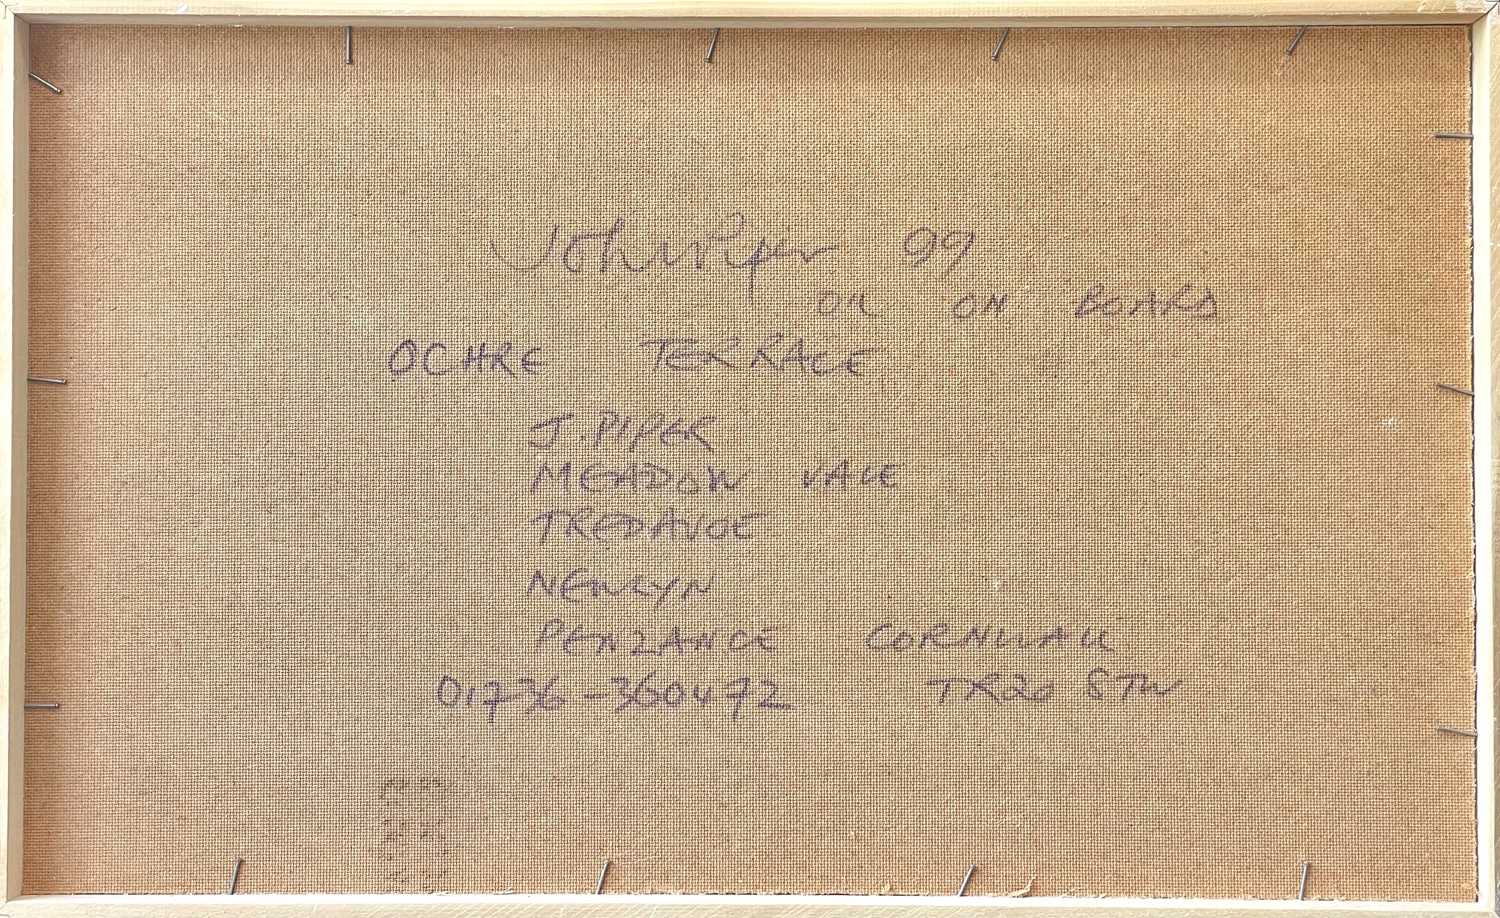 John Piper 99
OIL ON BOARD
OCHRE TERRACE
J. PIPER
MEADOW VALE
TREDAVOE
NEWLYN
PENZANCE CORNWALL
01736-360472 TR20 8TW